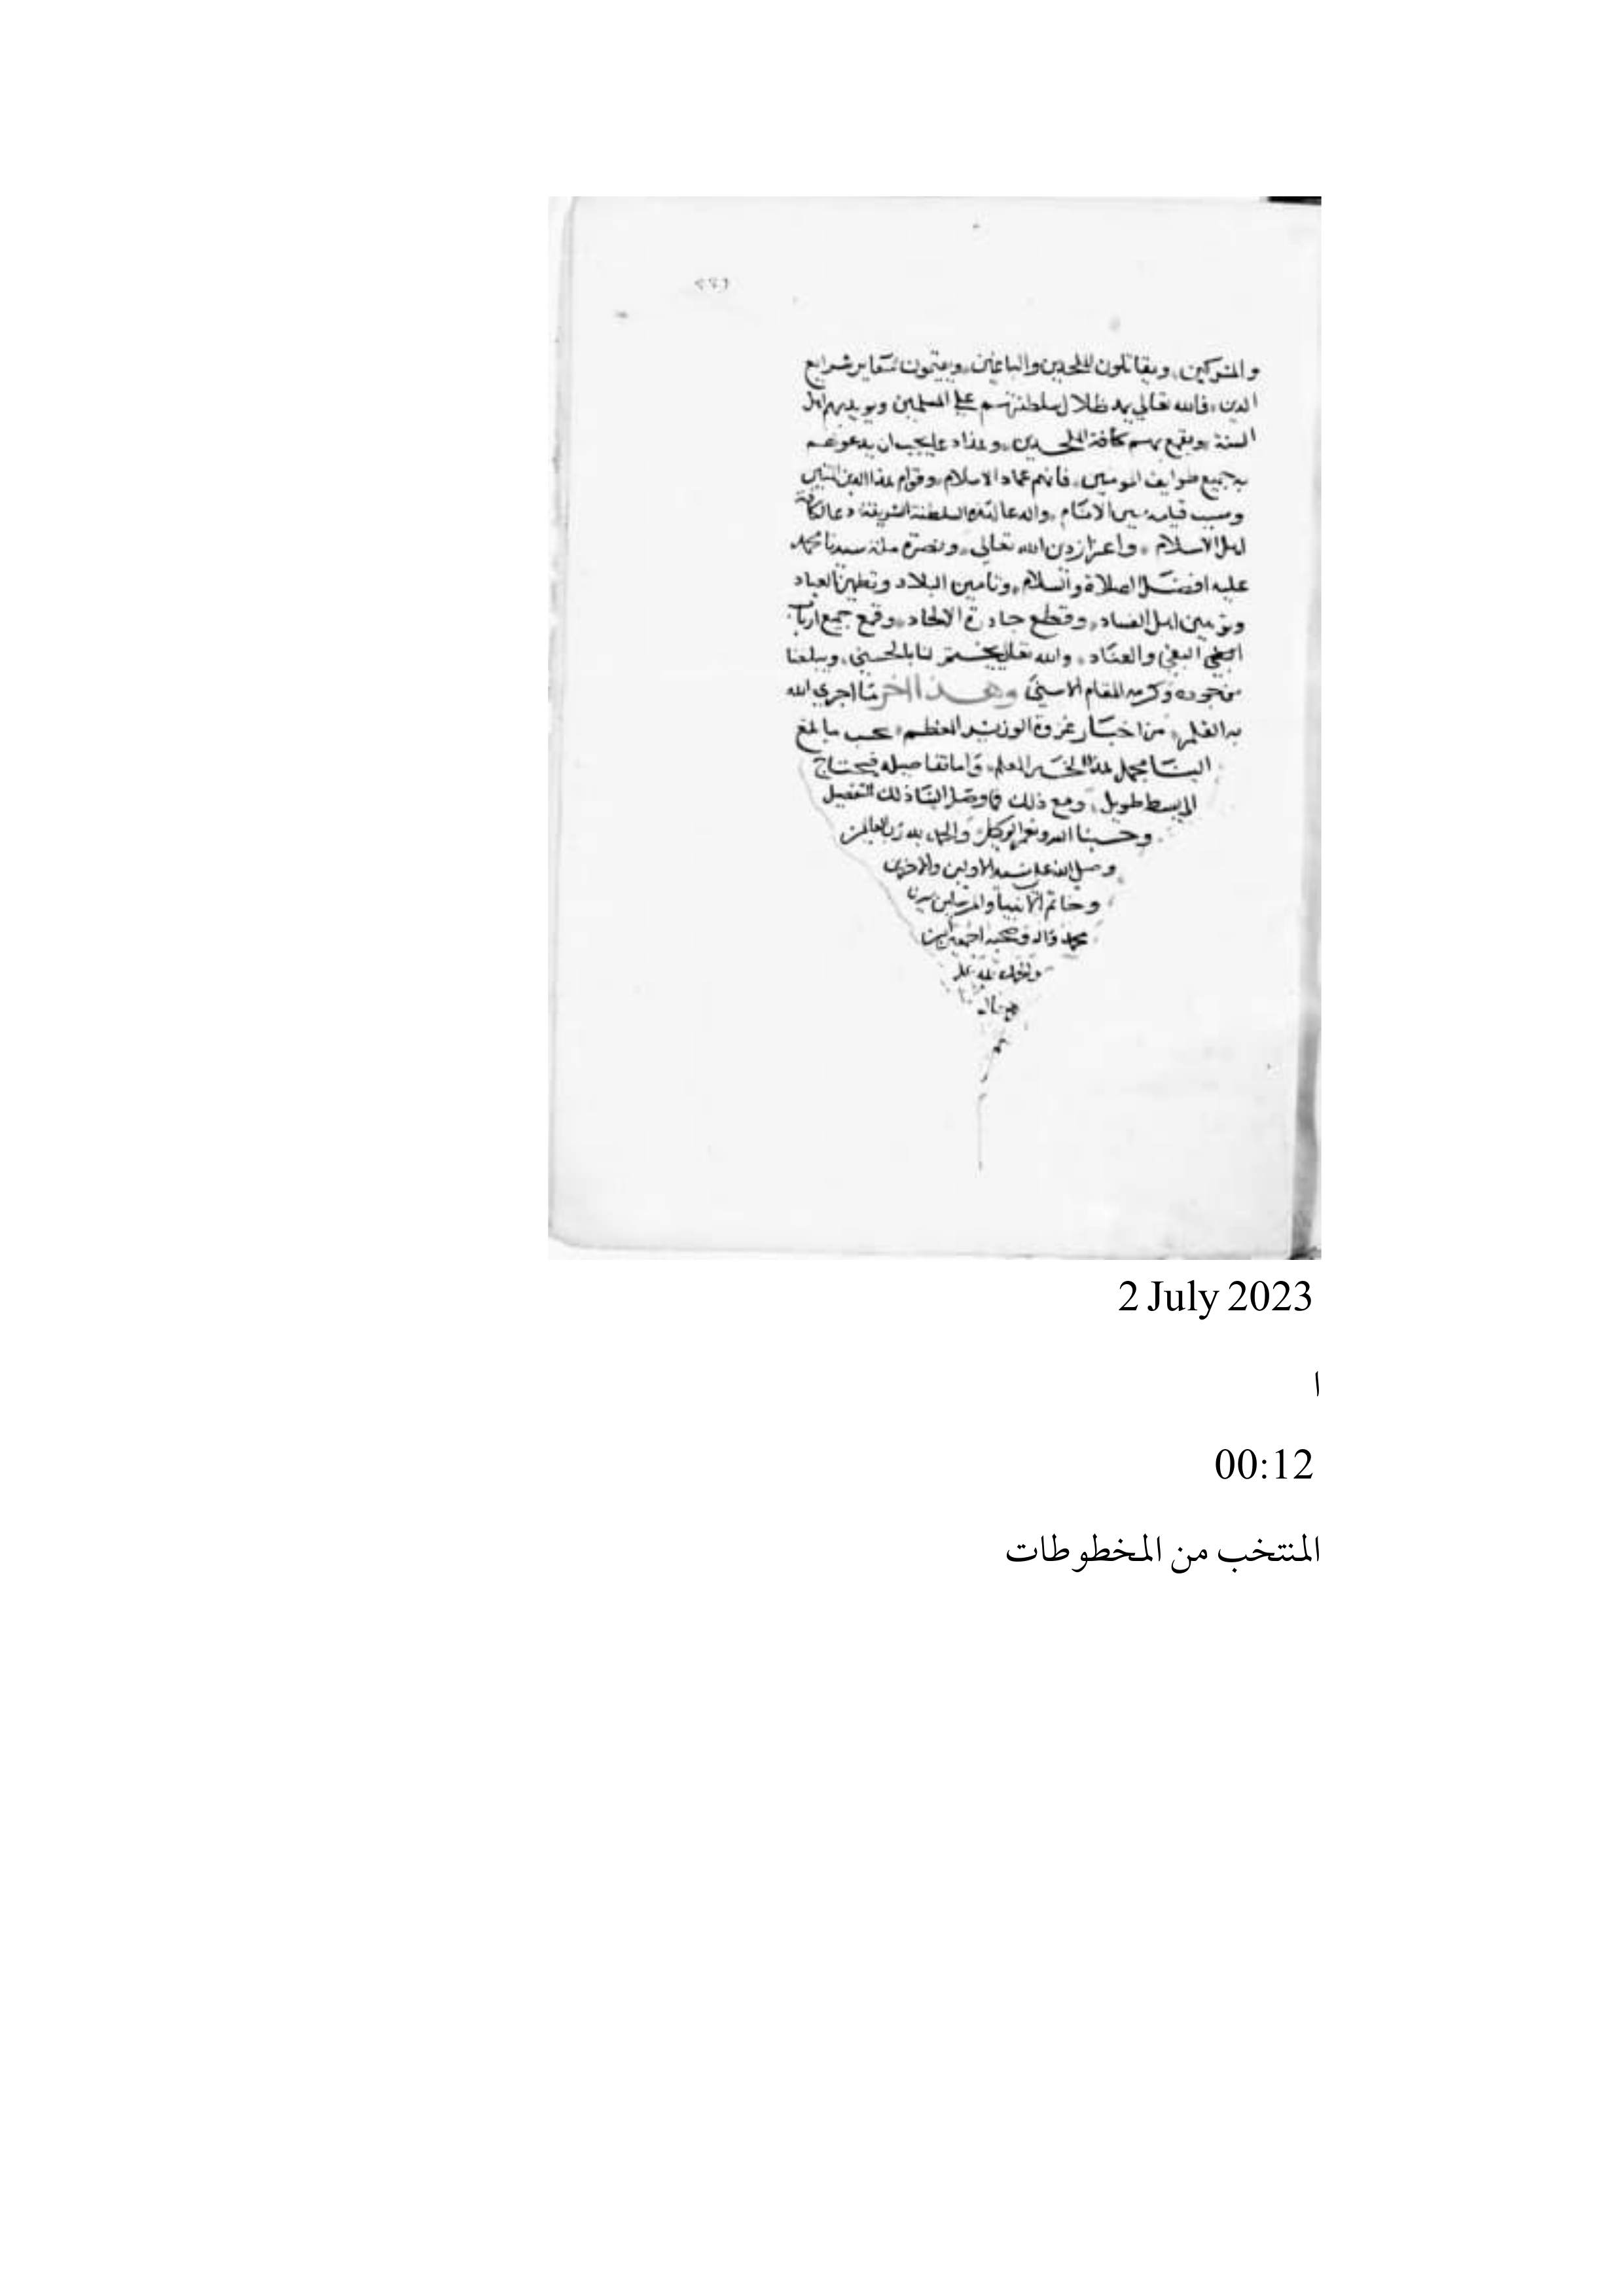 والمشركين ويقاتلون الملحدين والباغين ويقيمون شعاير شرايع
الدين فالله تعالي يمد ظلال سلطنتهم علي المسلمين ويويد بهم اهل
السنة ويقمع بهم كافة الملحدين وهذا دعا يجب ان يدعو لهم
به جميع طوايف المومنين فانهم عماد الاسلام وقوام هذا الدين المتين
وسبب قيامه بين الانام والدعا لهذه السلطنة الشريفة دعا لكافة
اهل الاسلام واعزاز دين الله تعالي ونصرة ملة سيدنا محمد
عليه افضل الصلاة والسلام وتامين البلاد وتطهير العباد
وتوهين اهل الفساد وقطع جادرة الالحاد وقمع جميع ارباب
البغي والعناد والله تعالي يختم لنا بالحسني ويبلغنا
من جوده وكرمه المقام الاسني وهذا اخر ما اجري الله
به القلم من اخبار غزوة الوزير المعظم بحسب ما بلغ
الينا مجمل هذا الخبر المعلم واما تفاصيله فيحتاج
الي بسط طويل ومع ذلك فما وصل الينا ذلك التفصيل
وحسبنا الله ونعم الوكيل والحمد لله رب العالمين
وصلي الله علي سيد الاولين والاخرين
وخاتم الانبيا والمرسلين سيدنا
محمد واله وصحبه اجمعين
2 July 2023
ا
00:12
المنتخب من المخطوطات